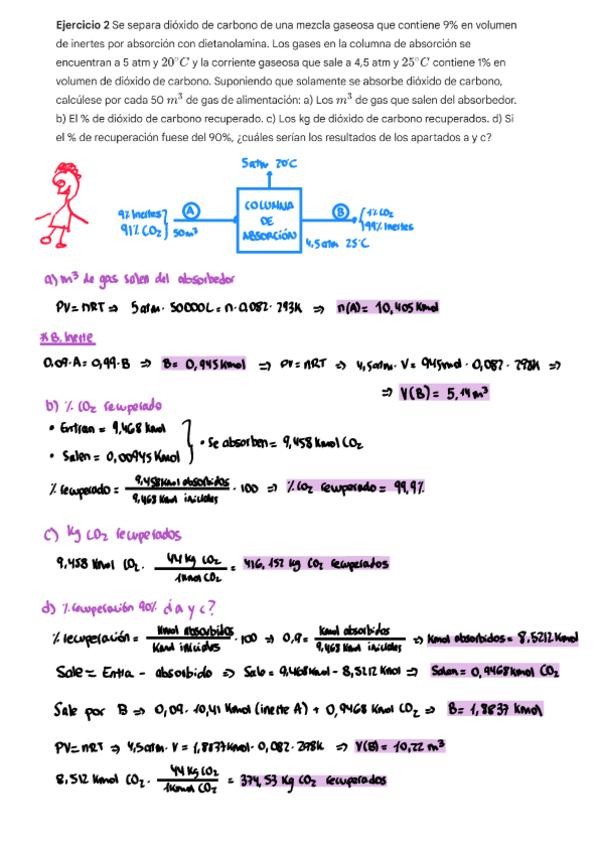 Ejercicio 2 Se separa dióxido de carbono de una mezcla gaseosa que contiene 9% en volumen
de inertes por absorción con dietanolamina. Los gases en la columna de absorción se
encuentran a 5 atm y 20°C y la corriente gaseosa que sale a 4,5 atm y 25°C contiene 1% en
volumen de dióxido de carbono. Suponiendo que solamente se absorbe dióxido de carbono,
calcúlese por cada 50 m³ de gas de alimentación: a) Los m³ de gas que salen del absorbedor.
b) El % de dióxido de carbono recuperado. c) Los kg de dióxido de carbono recuperados. d) Si
el % de recuperación fuese del 90%, ¿cuáles serían los resultados de los apartados a y c?
5 atm 20°C
9% Inertes
91% CO₂
A
50m³
COLUMNA
DE
ABSORCIÓN
B
1% CO₂
99% Inertes
4,5 atm 25°C
a) m³ de gas salen del absorbedor
PV = nRT ⇒ 5 atm · 50000L = n · 0,082 · 293K ⇒ n(A) = 10,405 Kmol
* B. Inerte
0,09·A = 0,99·B ⇒ B = 0,945 Kmol ⇒ PV = nRT ⇒ 4,5atm · V = 945mol · 0,082 · 298K ⇒
⇒ V(B) = 5,14 m³
b) % CO₂ recuperado
• Entran = 9,468 Kmol
• Salen = 0,00945 Kmol
• Se absorben = 9,458 Kmol CO₂
% recuperado = 9,458 Kmol absorbidos / 9,468 Kmol iniciales · 100 ⇒ % CO₂ recuperado = 99,9%
c) Kg CO₂ recuperados
9,458 Kmol CO₂ · 44 Kg CO₂ / 1Kmol CO₂ = 416,152 Kg CO₂ recuperados
d) % recuperación 90% ¿a y c?
% recuperación = Kmol absorbidos / Kmol iniciales · 100 ⇒ 0,9 = Kmol absorbidos / 9,468 Kmol iniciales ⇒ Kmol absorbidos = 8,5212 Kmol
Sale = Entra - absorbido ⇒ Sale = 9,468 Kmol - 8,5212 Kmol ⇒ Salen = 0,9468 Kmol CO₂
Sale por B ⇒ 0,09 · 10,41 Kmol (inerte A) + 0,9468 Kmol CO₂ ⇒ B = 1,8837 Kmol
PV = nRT ⇒ 4,5atm · V = 1,8837Kmol · 0,082 · 298K ⇒ V(B) = 10,22 m³
8,512 Kmol CO₂ · 44 Kg CO₂ / 1Kmol CO₂ = 374,53 Kg CO₂ recuperados